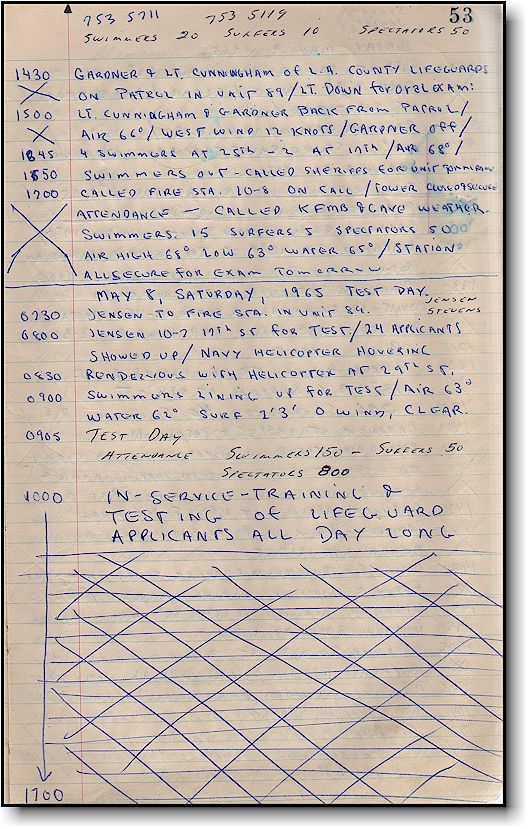 753 5711 753 5119 53
SWIMMERS 20 SURFERS 10 SPECTATORS 50
1430 GARDNER & LT. CUNNINGHAM of L.A. COUNTY LIFEGUARDS
ON PATROL IN UNIT 89/LT. DOWN for ORAL EXAM:
1500 LT. CUNNINGHAM & GARDNER BACK FROM PATROL/
AIR 66°/WEST WIND 12 KNOTS/GARDNER Off/
1645 4 SWIMMERS AT 25th - 2 AT 17th/AIR 68°/
1650 SWIMMERS OUT - CALLED SHERIFFS FOR UNIT TOMORROW
1700 CALLED FIRE STA. 10-8 ON CALL/TOWER CLOSED & SECURE
ATTENDANCE — CALLED KFMB & GAVE WEATHER.
SWIMMERS. 15 SURFERS 5 SPECTATORS 50
AIR HIGH 68° LOW 63° WATER 65°/STATION
ALL SECURE FOR EXAM TOMORROW
MAY 8, SATURDAY, 1965 TEST DAY. JENSEN
0730 JENSEN TO FIRE STA. IN UNIT 89. STEVENS
0800 JENSEN 10-7 17th ST for TEST/24 APPLICANTS
SHOWED UP/NAVY HELICOPTER HOVERING
0830 RENDEZVOUS WITH HELICOPTER AT 29th ST.
0900 SWIMMERS LINING UP FOR TEST/AIR 63°
WATER 62° SURF 2'3' 0 WIND, CLEAR.
0905 TEST DAY
ATTENDANCE SWIMMERS 150 - SURFERS 50
SPECTATORS 800
1000 IN-SERVICE-TRAINING &
TESTING of LIFEGUARD
APPLICANTS ALL DAY LONG
1700